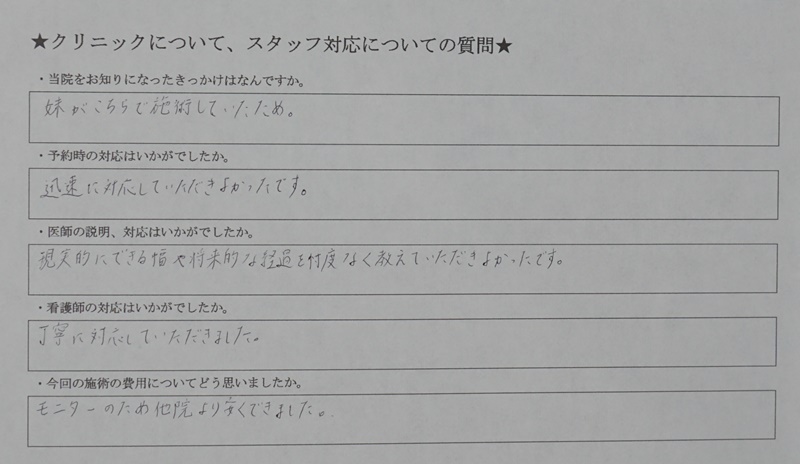 ★クリニックについて、スタッフ対応についての質問★
・当院をお知りになったきっかけはなんですか。
妹がこちらで施術していたため。
・予約時の対応はいかがでしたか。
迅速に対応していただきよかったです。
・医師の説明、対応はいかがでしたか。
現実的にできる幅や将来的な経過を忖度なく教えていただきよかったです。
・看護師の対応はいかがでしたか。
丁寧に対応していただきました。
・今回の施術の費用についてどう思いましたか。
モニターのため他院より安くできました。